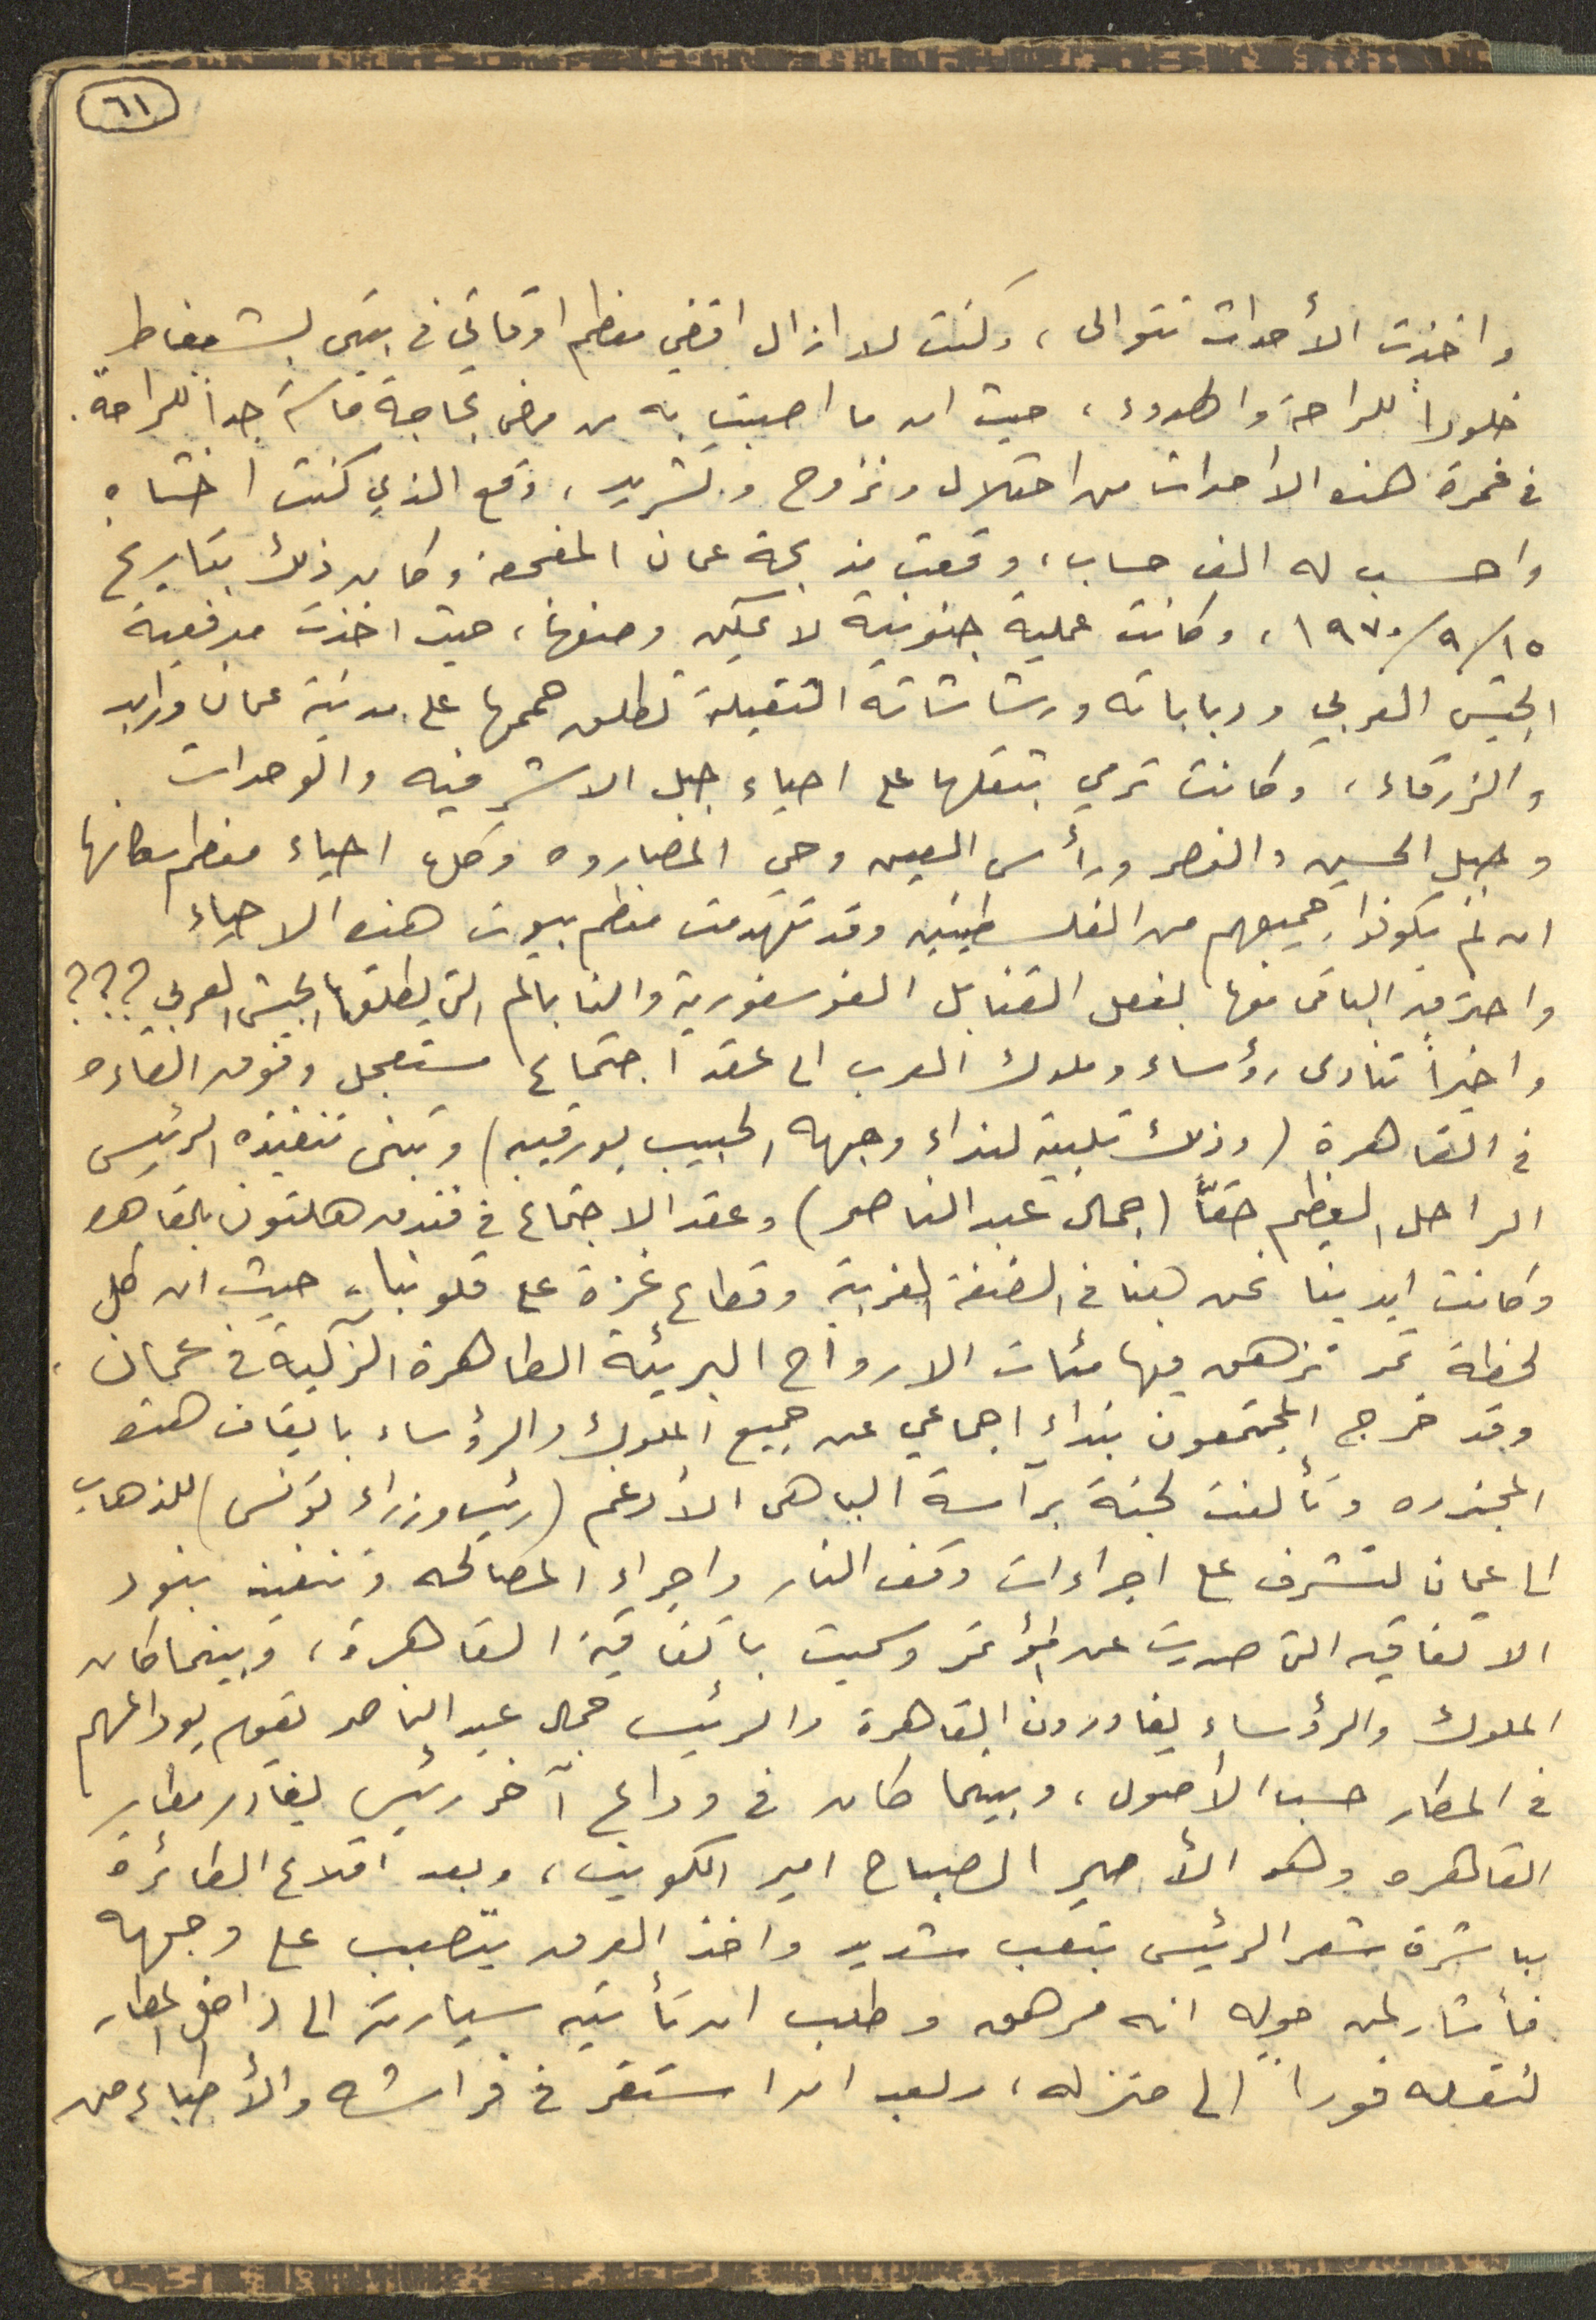 ٦١
واخذت الأحداث تتوالى ، وكنت لا ازال اقضي معظم اوقاتي في بيتي بشعفاط
خلوداً للراحة والهدوء ، حيث ان ما اصبت به من مرض بحاجة ماسة جداً للراحة .
في غمرة هذه الاحداث من احتلال ونزوح وتشريد ، وقع الذي كنت اخشاه
واحسب له الف حساب ، وقعت مذبحة عمان المفجعة وكان ذلك بتاريخ
١٩٧٠/٩/١٥ ، وكانت عملية جنونية لا يمكن وصفها ، حيث اخذت مدفعية
الجيش العربي ودباباته ورشاشاته الثقيلة تطلق حممها على مدينة عمان واربد
والزرقاء ، وكانت ترمي بثقلها على احياء جبل الاشرفيه والوحدات
وجبل الحسين والقصر ورأس العين وحي المصاروه وكلها احياء معظم سكانها
ان لم يكونوا جميعهم من الفلسطينيين وقد تهدمت معظم بيوت هذه الاحياء
واحترق الباقي منها بفعل القنابل الفوسفورية والنابالم التي يطلقها الجيش العربي ؟؟؟
واخيراً تنادى رؤساء وملوك العرب الى عقد اجتماع مستعجل وفوق العاده
في القاهرة ( وذلك تلبية لنداء وجهه الحبيب بورقيبه ) وتبنى تنفيذه الرئيس
الراحل العظيم حقاً ( جمال عبد الناصر ) وعقد الاجتماع في فندق هلتون بالقاهره
وكانت ايدينا نحن هنا في الضفة الغربية وقطاع غزة على قلوبنا ، حيث ان كل
لحظة تمر تزهق فيها مئات الارواح البريئة الطاهرة الزكية في عمان .
وقد خرج المجتمعون بنداء اجماعي عن جميع الملوك والرؤساء بايقاف هذه
المجزره وتألفت لجنة برآسة الباهي الأدغم ( رئيس وزراء تونس ) للذهاب
الى عمان لتشرف على اجراءات وقف النار واجراء المصالحه وتنفيذ بنود
الاتفاقيه التي صدرت عن المؤتمر وسميت باتفاقية القاهرة ، وبينما كان
الملوك والرؤساء يغادرون القاهرة والرئيس جمال عبد الناصر يقوم بوداعهم
في المطار حسب الاصول ، وبينما كان في وداع آخر رئيس يغادر مطار
القاهره وهو الأمير الصباح امير الكويت ، وبعد اقلاع الطائرة
مباشرة شعر الرئيس بتعب شديد واخذ العرق يتصبب على وجهه
فأشار لمن حوله انه مرهق وطلب ان تأتيه سيارته الى داخل المطار
لنقله فوراً الى منزله ، وبعد ان استقر في فراشه والأطباء من